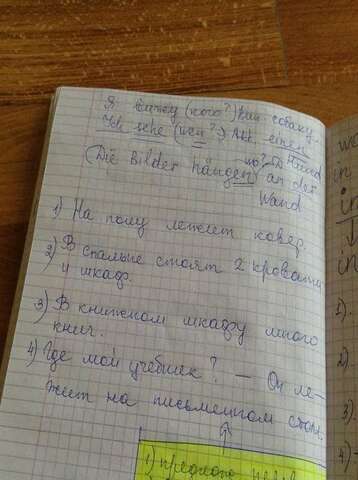 Я вижу (кого?) Вин. собаку.
Ich sehe (wen?) Akk. einen Hund
(Die Bilder hängen wo? D. an der
Wand
1) На полу лежит ковёр.
2) В спальне стоят 2 кровати
и шкаф.
3) В книжном шкафу много
книг.
4) Где мой учебник? – Он ле-
жит на письменном столе.
1) предлог
we
in
in
in
1).
2)
3).
4)